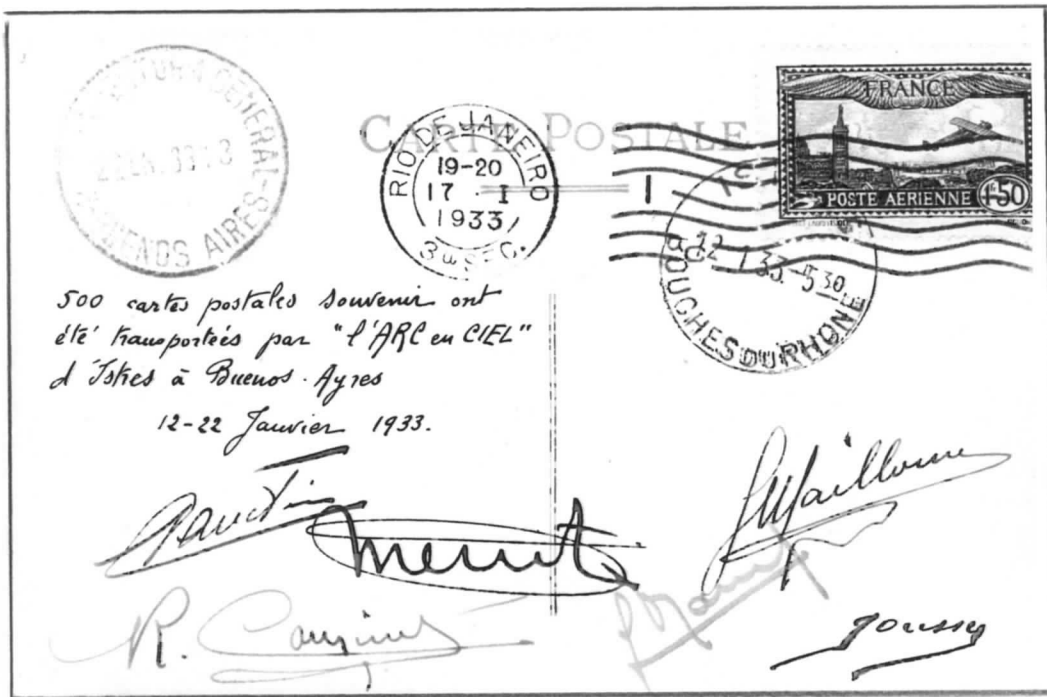 GENERAL
BUENOS AIRES
CARTE POSTALE
RIO DE JANEIRO
19-20
17 I
1933
3ª SEC.
FRANCE
POSTE AERIENNE 1F50
I
12 1 33 5 30
BOUCHES DU RHONE
500 cartes postales souvenir ont
été transportées par "l'ARC en CIEL"
d'Istres à Buenos-Ayres
12-22 Janvier 1933.
Mermoz
Mailloux
R. Couzinet
Jousse